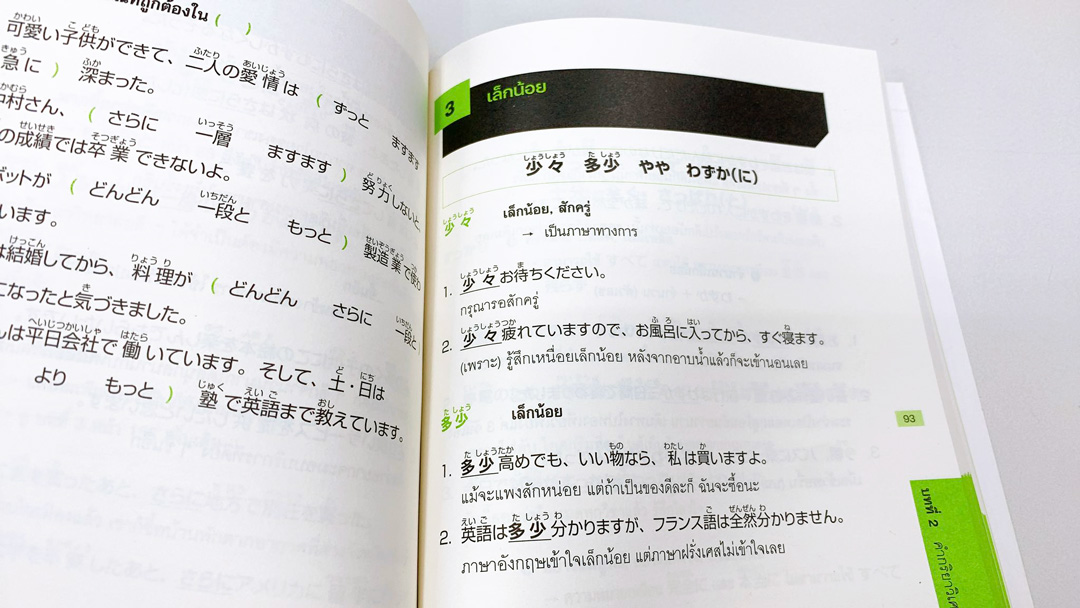 ที่ถูกต้องใน ( )
可愛い子供ができて、二人の愛情は ( ずっと ますます
急に ) 深まった。
中村さん、 ( さらに 一層 ますます ) 努力しないと、
の成績では卒業できないよ。
ボットが ( どんどん 一段と もっと ) 製造業で使わ
います。
は結婚してから、料理が ( どんどん さらに 一段と
になったと気づきました。
んは平日会社で働いています。そして、土・日は
より もっと ) 塾で英語まで教えています。
3 เล็กน้อย
少々 多少 やや わずか(に)
少々 เล็กน้อย, สักครู่
→ เป็นภาษาทางการ
1. 少々お待ちください。
กรุณารอสักครู่
2. 少々疲れていますので、お風呂に入ってから、すぐ寝ます。
(เพราะ) รู้สึกเหนื่อยเล็กน้อย หลังจากอาบน้ำแล้วก็จะเข้านอนเลย
多少 เล็กน้อย
1. 多少高めでも、いい物なら、私は買いますよ。
แม้จะแพงสักหน่อย แต่ถ้าเป็นของดีละก็ ฉันจะซื้อนะ
2. 英語は多少分かりますが、フランス語は全然分かりません。
ภาษาอังกฤษเข้าใจเล็กน้อย แต่ภาษาฝรั่งเศสไม่เข้าใจเลย
93
บทที่ 2 คำกริยาวิเศ